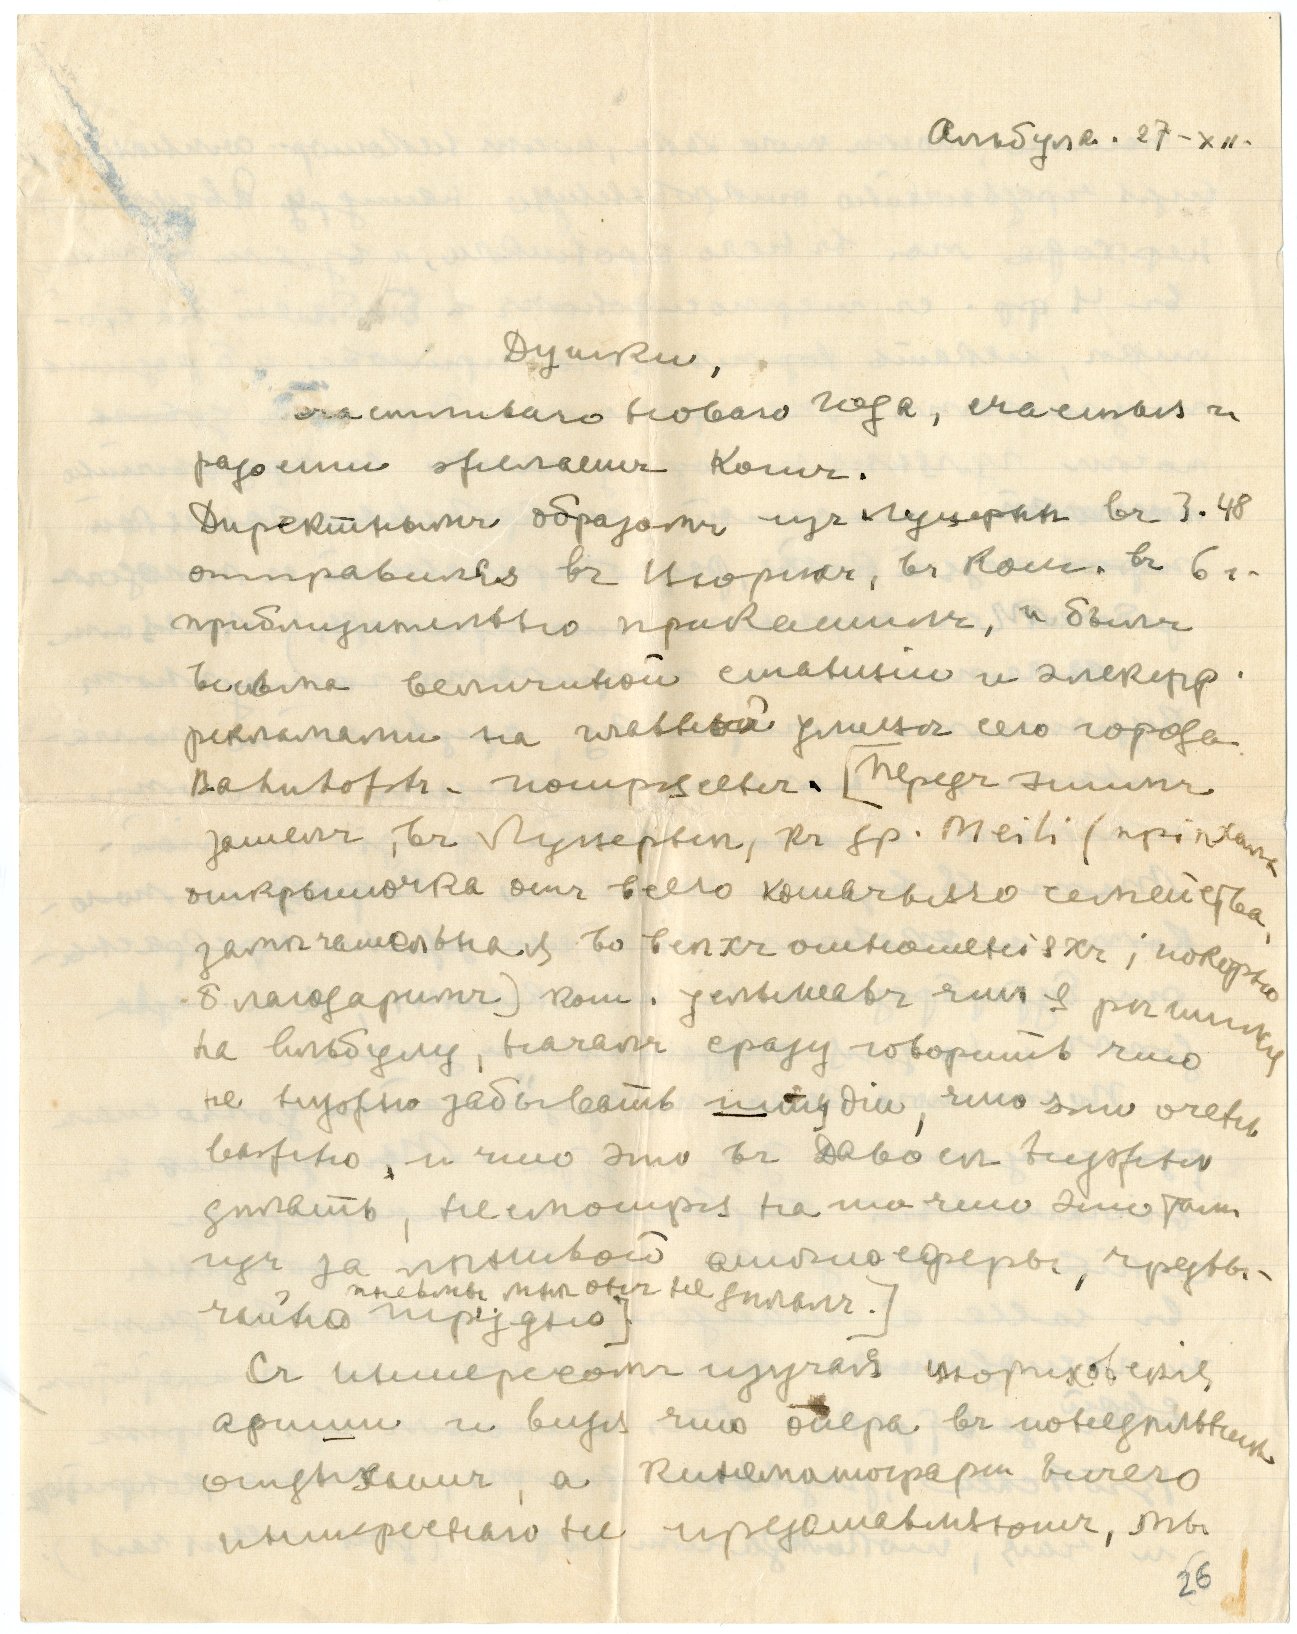 Альбула. 27-XII.
Душки,
счастливаго новаго года, счастья и
радости желаетъ Котъ.
Директнымъ образомъ изъ Луцерны въ 3.48
отправился въ Цюрихъ, въ Кот. въ 6 ч.
приблизительно прикатилъ, и былъ
весьма величиной станціи и электр.
рекламами на главной улицѣ сего города
Bahnhofstr. - потрясенъ. [Передъ этимъ
зашелъ, въ Луцернѣ, къ др. Meili (пріѣхала
открыточка отъ всего кошачьяго семейства,
замѣчательная во всѣхъ отношеніяхъ; покорно
благодаримъ) кот. услышавъ что я рѣшилъ
на Альбулу, началъ сразу говорить что
не нужно забывать этюдіи, что это очень
важно, и что это въ Давосѣ нужно
дѣлать, несмотря на то что это тамъ
изъ за лѣнивой атмосферы, чрезвы-
чайно трудно]
пневмы мнѣ онъ не дѣлалъ.]
Съ интересомъ изучая цюриховскія
афиши и видя что опера въ понедѣльникъ
отдыхаетъ, а кинематографы ничего
интереснаго не представляютъ, мы
26